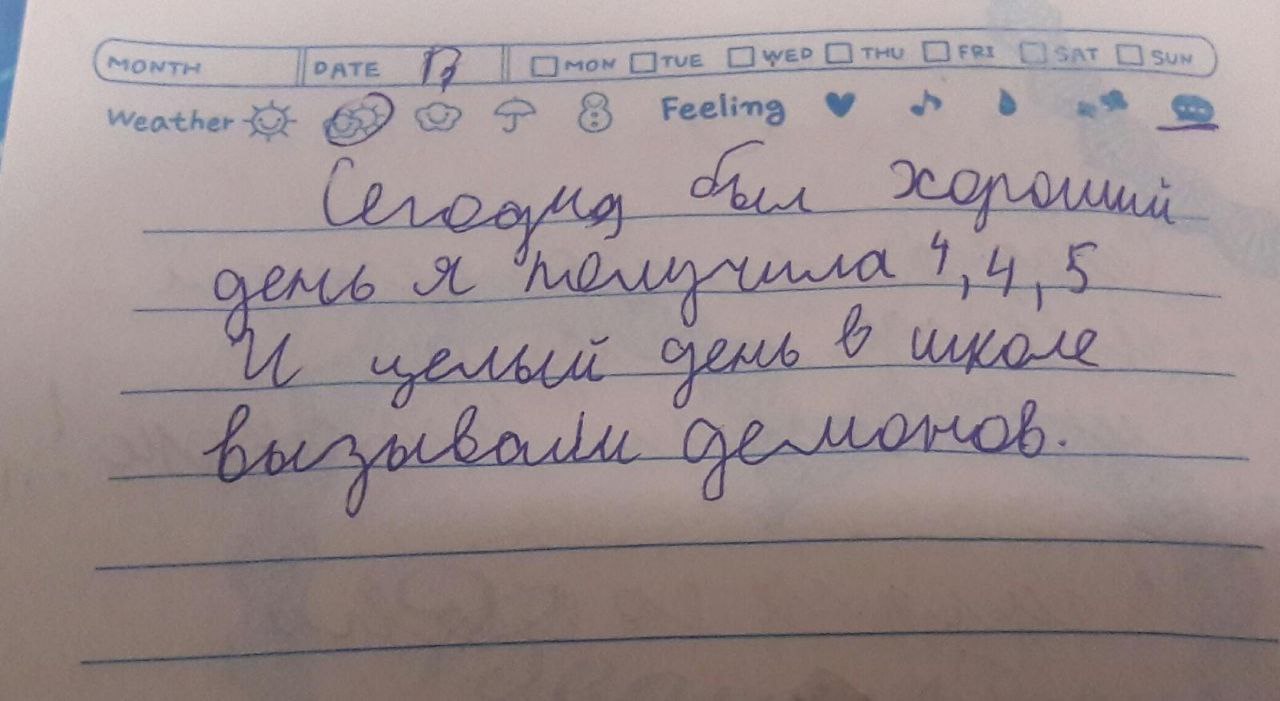 MONTH DATE 17 MON TUE WED THU FRI SAT SUN
Weather Feeling
Сегодня был хороший
день я получила 4, 4, 5
И целый день в школе
вызывали демонов.